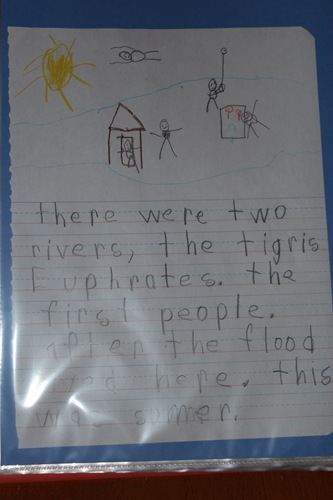 there were two
rivers, the tigris
Euphrates. the
first people.
after the flood
here. this
was sumer.